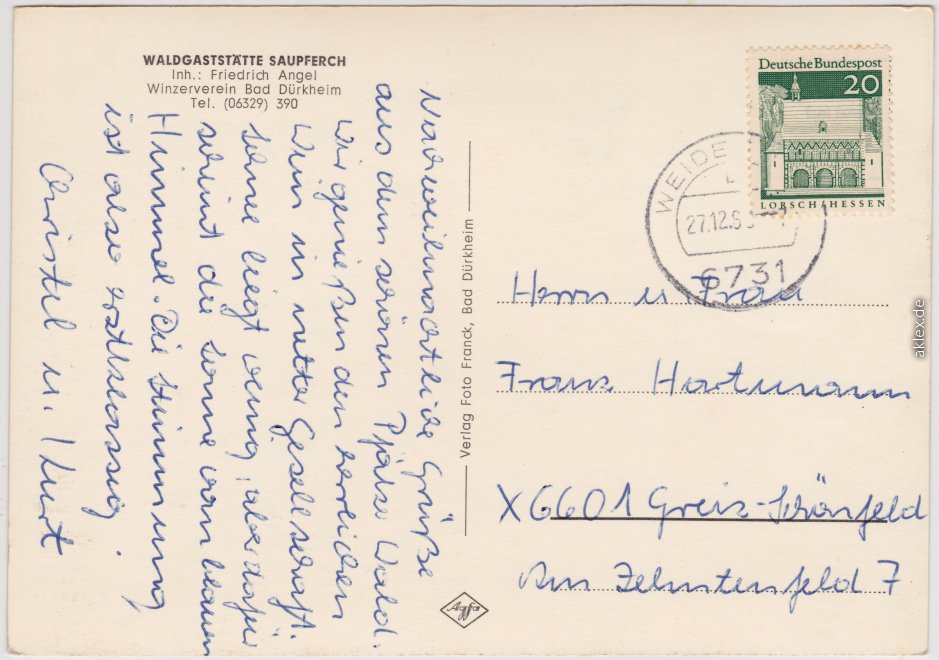 WALDGASTSTÄTTE SAUPFERCH
Inh.: Friedrich Angel
Winzerverein Bad Dürkheim
Tel. (06329) 390
Nachweihnachtliche Grüße
aus dem schönen Pfälzer Wald.
Wir genießen den herrlichen
Wein in netter Gesellschaft.
Schnee liegt wenig, aber dafür
scheint die Sonne vom blauen
Himmel. Die Stimmung
ist also erstklassig.
Christel u. Kurt
Verlag Foto Franck, Bad Dürkheim
Agfa
Deutsche Bundespost
20
LORSCH/HESSEN
WEIDE
27.12.6
6731
Herrn u. Frau
Franz Hartmann
X6601 Greiz-Schönfeld
Am Zehntenfeld 7
aklex.de